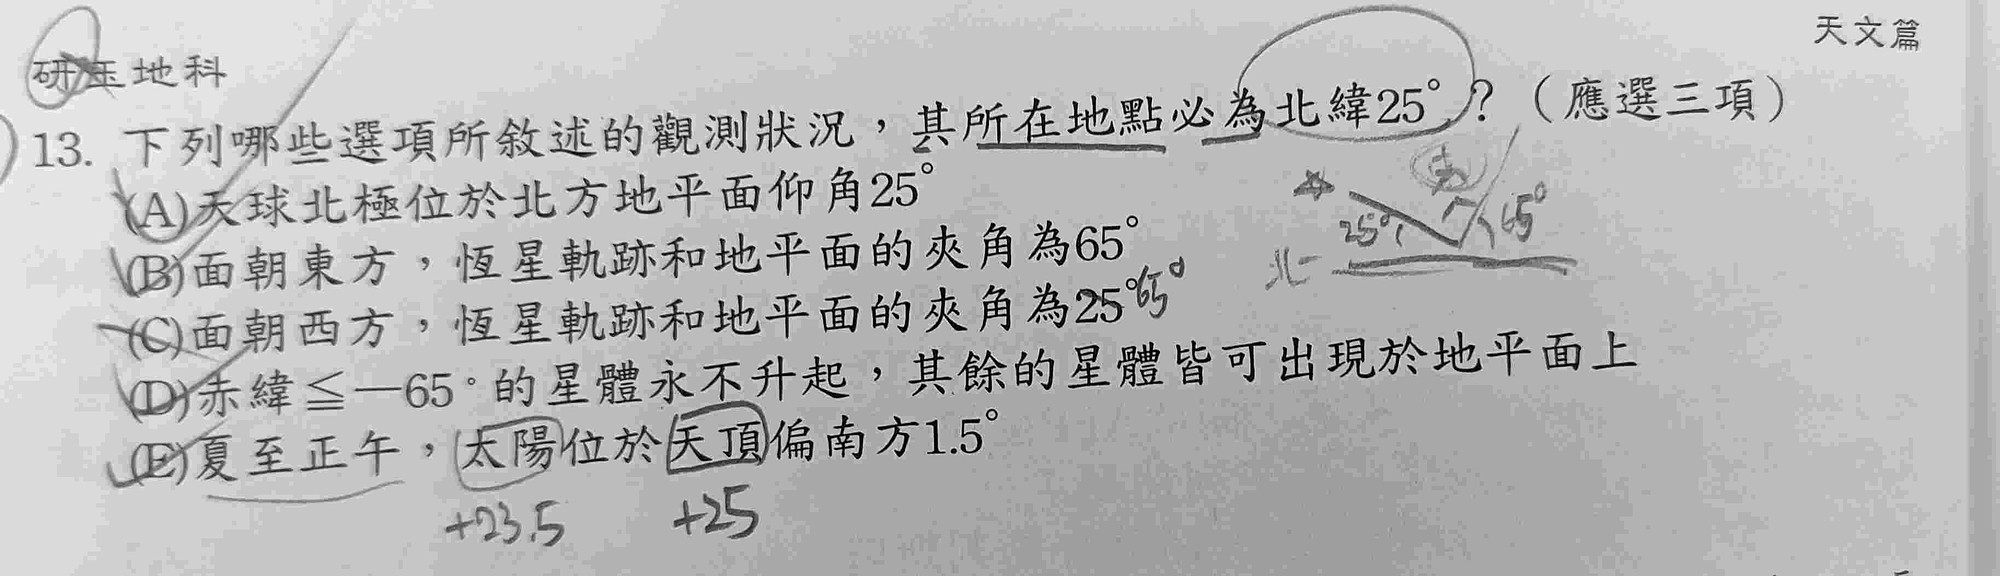 天文篇
研玉地科
13. 下列哪些選項所敘述的觀測狀況，其所在地點必為北緯25°？（應選三項）
(A)天球北極位於北方地平面仰角25°
(B)面朝東方，恆星軌跡和地平面的夾角為65°
(C)面朝西方，恆星軌跡和地平面的夾角為25° 65°
(D)赤緯≦—65°的星體永不升起，其餘的星體皆可出現於地平面上
(E)夏至正午，太陽位於天頂偏南方1.5°
+23.5 +25
25° 65°
北